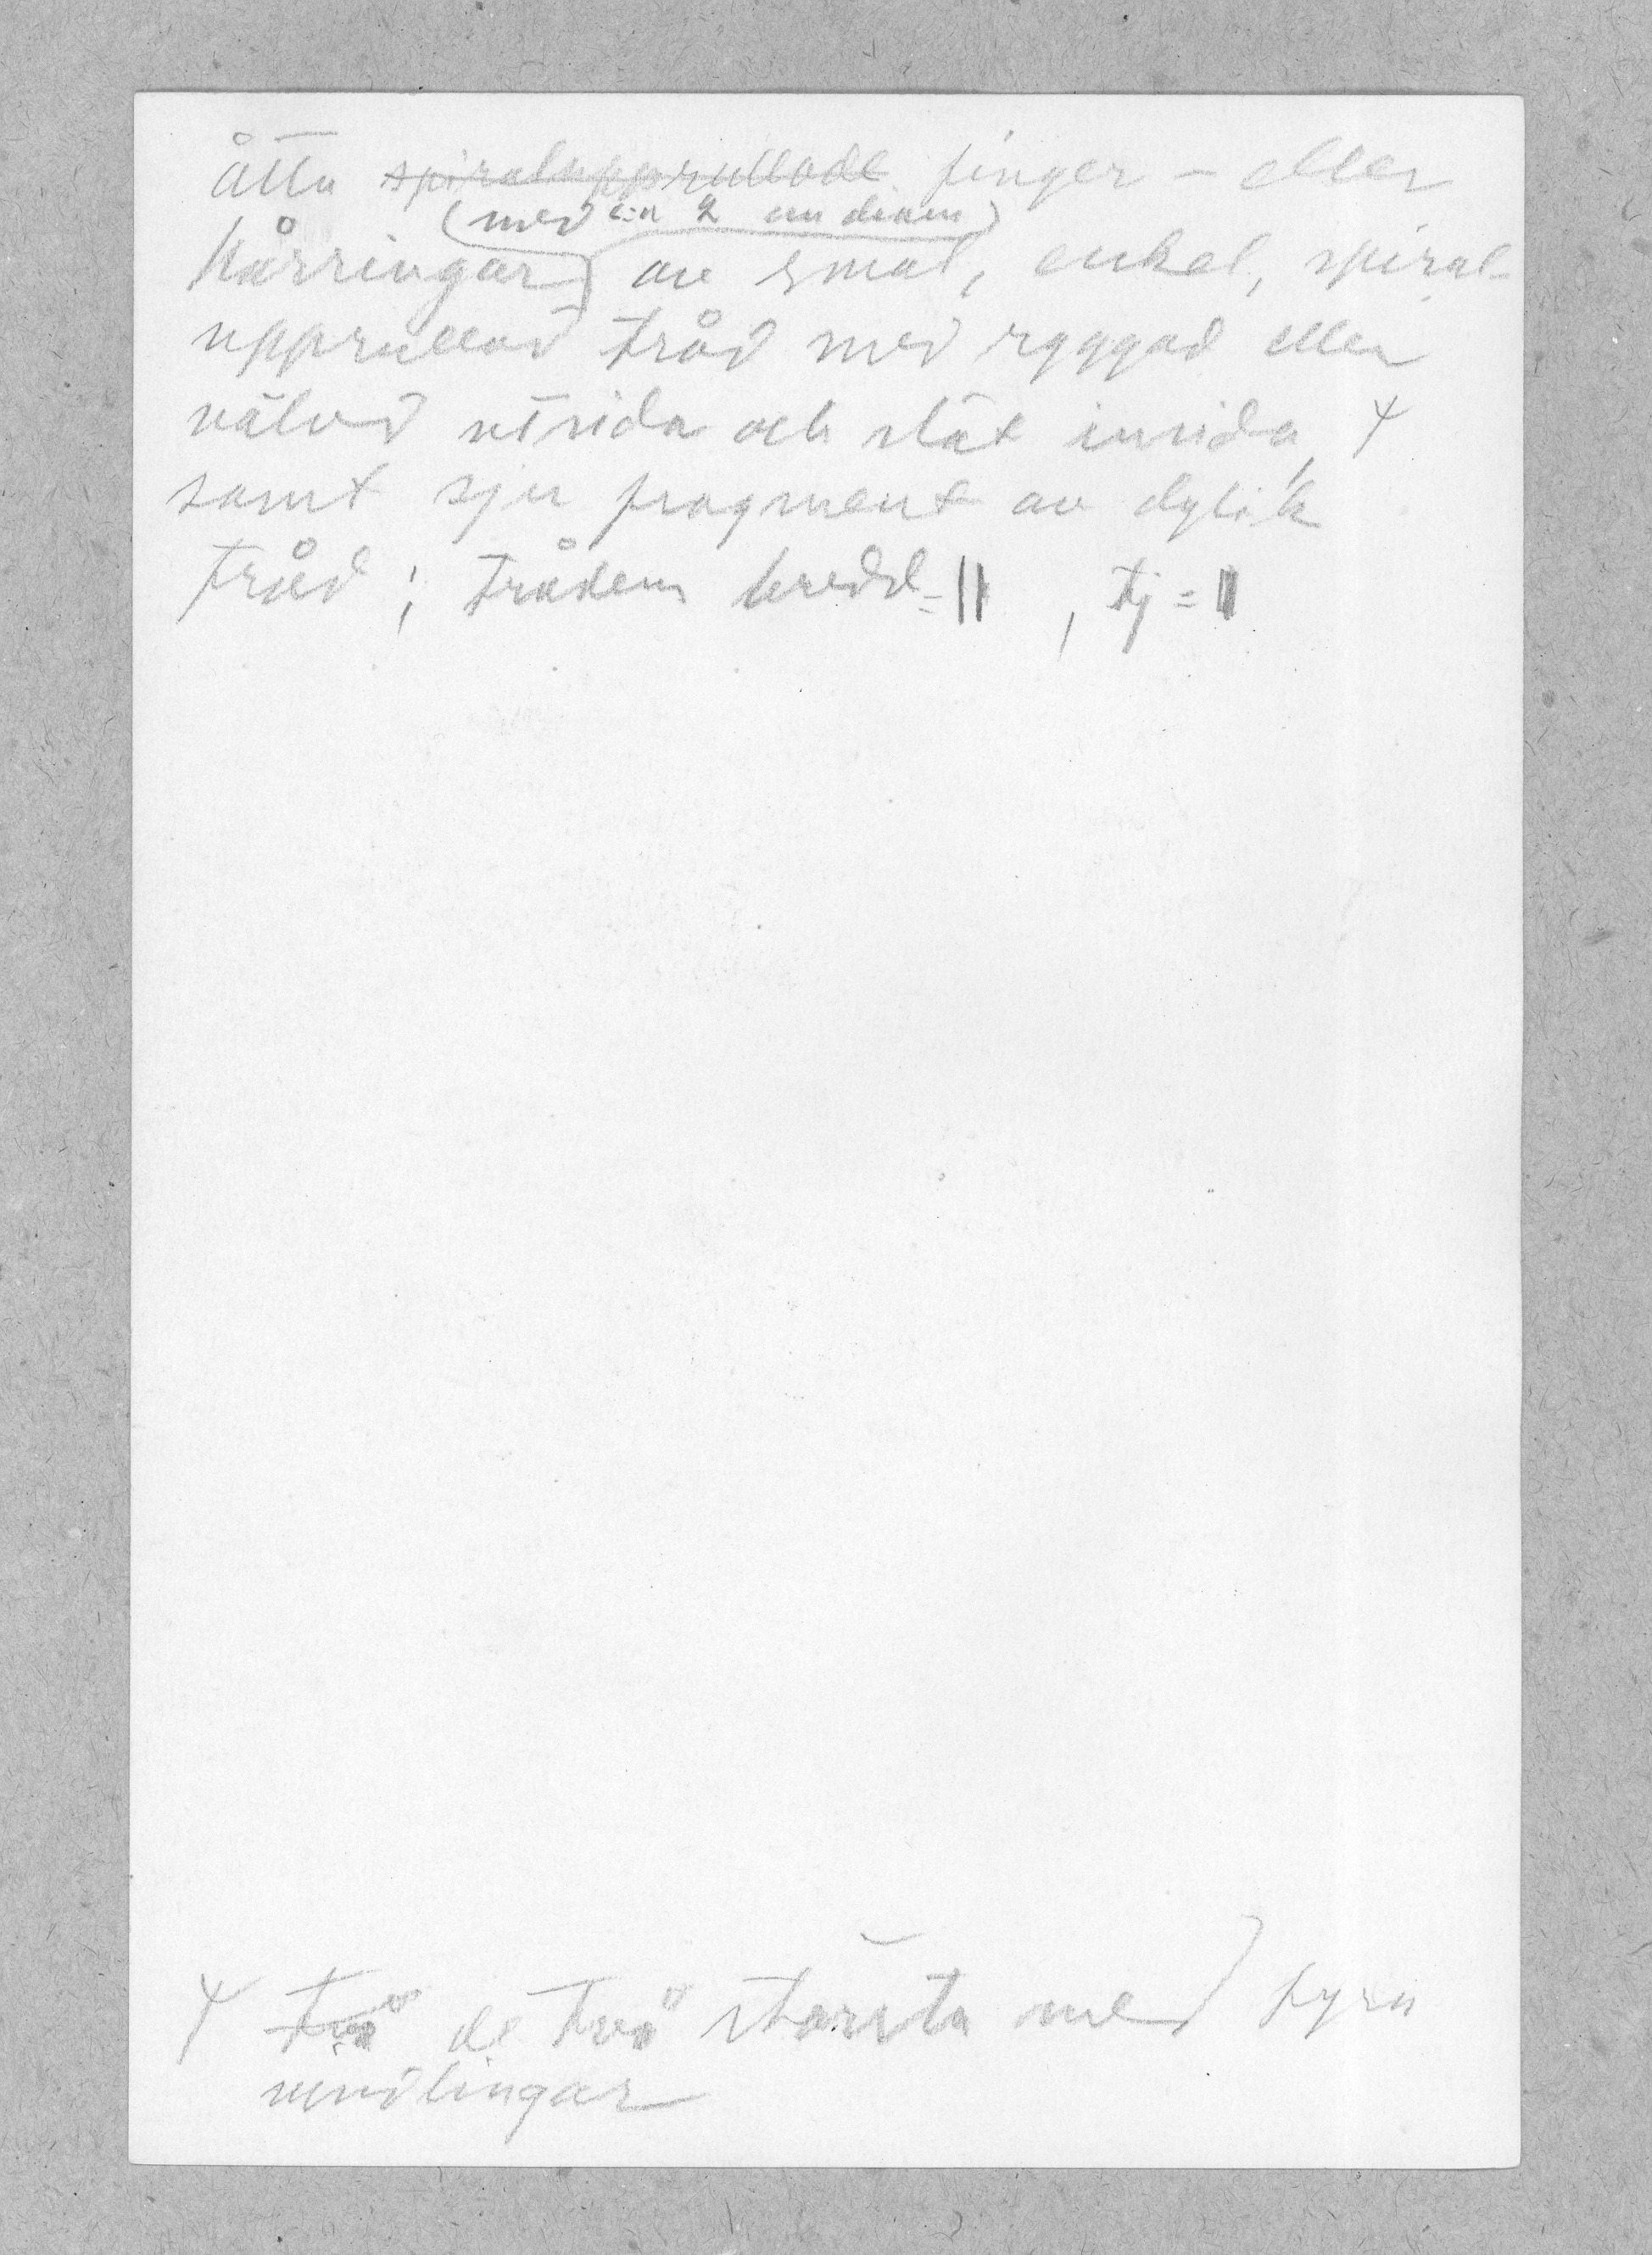 åtta spiralupprullade finger - eller
(med 2 av dem)
hårringar av smal, enkel, spiral-
upprullad tråd med ryggad eller
välvd utsida och slät insida,
samt sju fragment av dylik
tråd; trådens bredd = || , tj = ||
två de två största med fyra
vindlingar